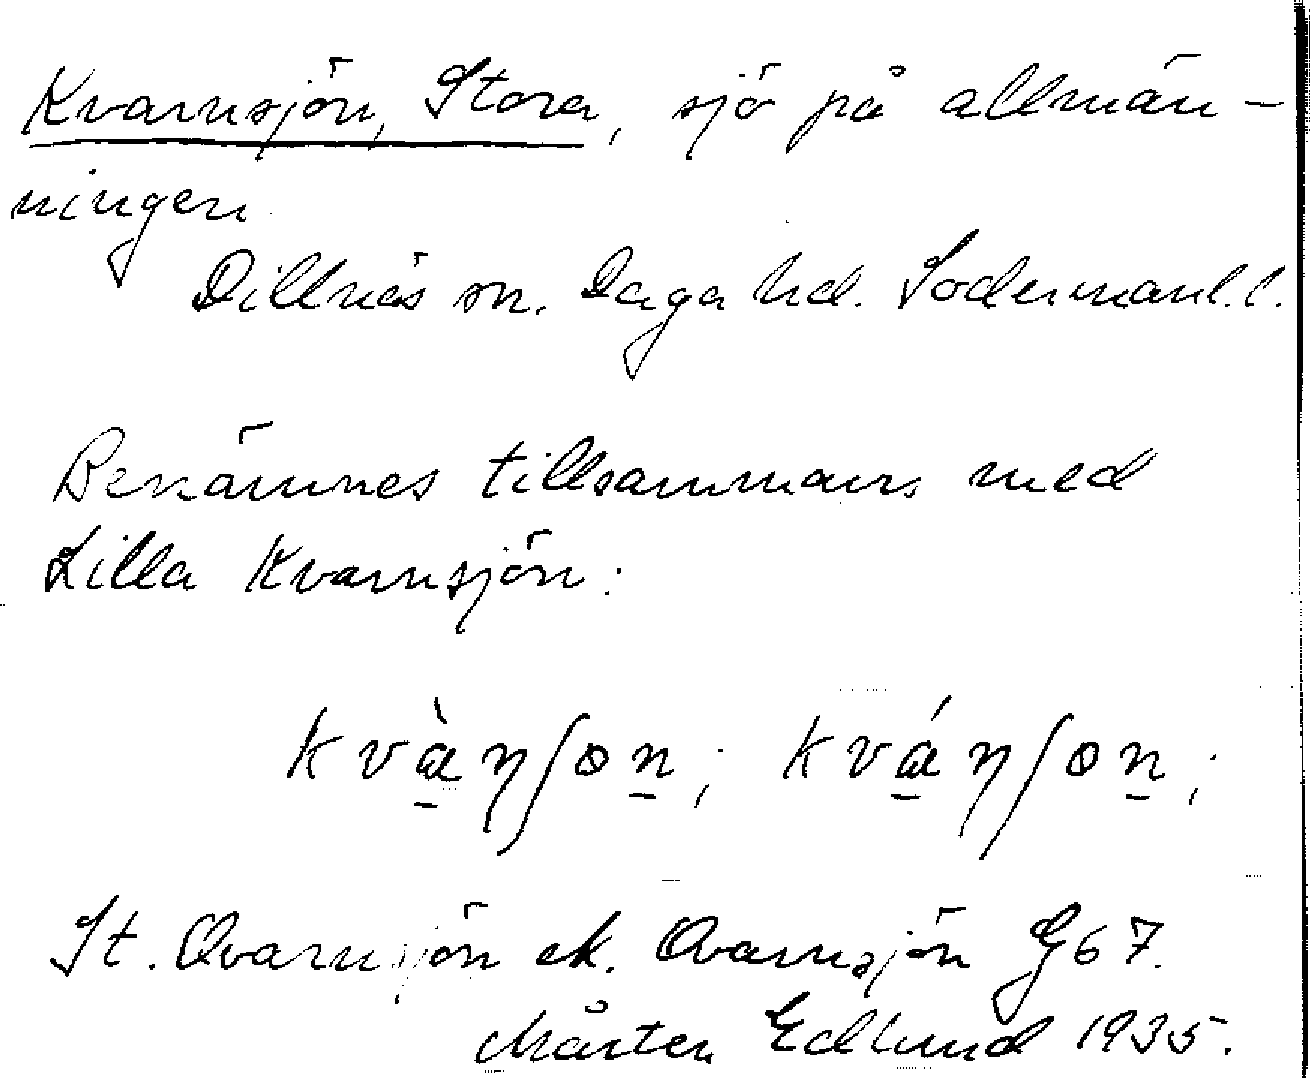 Kvarnsjön, Stora, sjö på allmän-
ningen
Dillnäs sn. Daga hd. Södermanl. l.
Benämnes tillsammans med
Lilla Kvarnsjön:
kvàɳʃon; kváɳʃon;
St. Qvarnsjön ek. Qvarnsjön G67.
Mårten Edlund 1935.